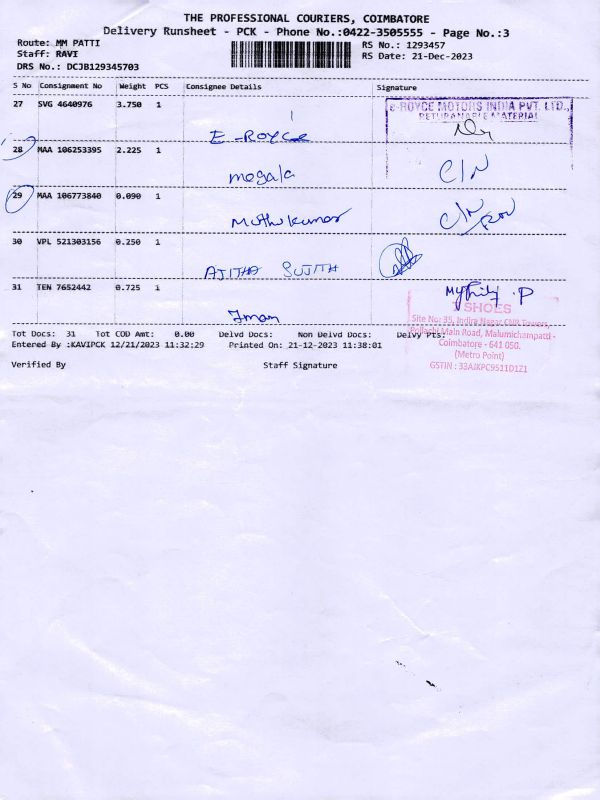 THE PROFESSIONAL COURIERS, COIMBATORE
Delivery Runsheet - PCK - Phone No.:0422-3505555 - Page No.:3
Route: MM PATTI
RS No.: 1293457
Staff: RAVI
RS Date: 21-Dec-2023
DRS No.: DCJB129345703
S No Consignment No Weight PCS Consignee Details Signature
27 SVG 4640976 3.750 1
e-ROYCE MOTORS INDIA PVT. LTD.,
RETURNABLE MATERIAL
E-ROYCE
28 MAA 106253395 2.225 1
mogala C/N
29 MAA 106773840 0.090 1
Muthukumar C/N
30 VPL 521303156 0.250 1
AJITHA SUJITH
31 TEN 7652442 0.725 1
Mythily .P
Iman
SHOES
Site No: 35, Indira Nagar CNR Towers,
Pollachi Main Road, Malumichampatti -
Coimbatore - 641 050.
(Metro Point)
GSTIN : 33AJKPC9511D1Z1
Tot Docs: 31 Tot COD Amt: 0.00 Delvd Docs: Non Delvd Docs: Delvy Pts:
Entered By :KAVIPCK 12/21/2023 11:32:29 Printed On: 21-12-2023 11:38:01
Verified By Staff Signature